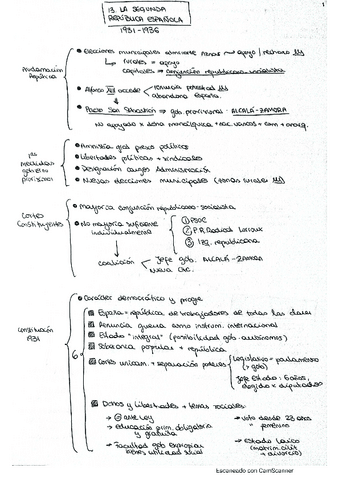 13. LA SEGUNDA
REPÚBLICA ESPAÑOLA
1931-1936
1
Proclamación
República
Elecciones municipales
→ apoyo
rurales = apoyo
capitales → conjunción republicano-socialista
Alfonso XIII accede
renuncia potestad
abandona España.
Pacto San Sebastián → gob. provisional - ALCALÁ-ZAMORA
No apoyado x zona monárquica + nac. vascos + com + anarq.
1as
Medidas
gobierno
provisional
Amnistía gral presos políticos
Libertades políticas + sindicales
Designación cargos Administración
Nuevas elecciones municipales (zonas rurales
Cortes
Constituyentes
Mayoría conjunción republicano-socialista
No mayoría suficiente
individualmente
① PSOE
② P.R. Radical Lerroux
③ Izq. republicana
coalición
Jefe gob. ALCALÁ-ZAMORA
Nueva
Constitución
1931
Carácter democrático y progre
6
España = república de trabajadores de todas las clases
Renuncia guerra como instrum. internacional
Estado "integral" (posibilidad gob. autónomos)
Soberanía popular + república
Cortes unicam. + separación poderes
Legislativo = parlamento
(> gob)
Jefe Estado: 6 años,
elegido x diputados
Dchos y libertades + temas sociales:
→ = ante ley
→ educación prim. obligatoria
y gratuita
→ Facultad gob expropiar
bienes utilidad social
→ voto desde 23 años
+ femenino
→ Estado laico
(matrim. civil
+ divorcio)
Escaneado con CamScanner